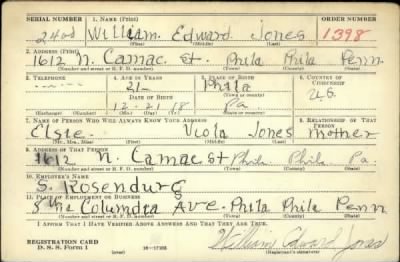 SERIAL NUMBER 1. NAME (Print) ORDER NUMBER
William Edward Jones 1398
(First) (Middle) (Last)
2. ADDRESS (Print)
1612 N. Camac St. Phila Phila Penn.
(Number and street or R. F. D. number) (Town) (County) (State)
3. TELEPHONE 4. AGE IN YEARS 5. PLACE OF BIRTH 6. COUNTRY OF CITIZENSHIP
21 Phila
DATE OF BIRTH (Town or county)
12-21-18 Pa U.S.
(Mo.) (Day) (Yr.) (State or country)
7. NAME OF PERSON WHO WILL ALWAYS KNOW YOUR ADDRESS 8. RELATIONSHIP OF THAT PERSON
Elsie Viola Jones Mother
(Mr., Mrs., Miss) (First) (Middle) (Last)
9. ADDRESS OF THAT PERSON
1612 N. Camac St Phila. Phila. Pa.
(Number and street or R. F. D. number) (Town) (County) (State)
10. EMPLOYER'S NAME
S. Rosenburg
11. PLACE OF EMPLOYMENT OR BUSINESS
8th Columbia Ave. Phila Phila Penn
(Number and street or R. F. D. number) (Town) (County) (State)
I AFFIRM THAT I HAVE VERIFIED ABOVE ANSWERS AND THAT THEY ARE TRUE.
REGISTRATION CARD
D. S. S. Form 1 William Edward Jones
(Registrant's signature)